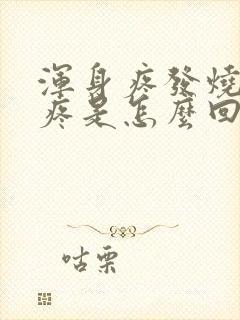 渾身疼發燒
疼是怎麼回
咕栗